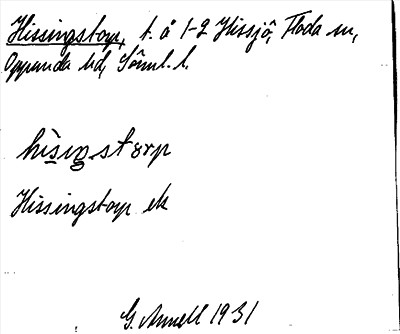 Hissingstorp, t. å 1-2 Hissjö, Floda sn,
Oppunda hd, Sörml. l.
hisigstorp
Hissingstorp ek
G. Annell 1931